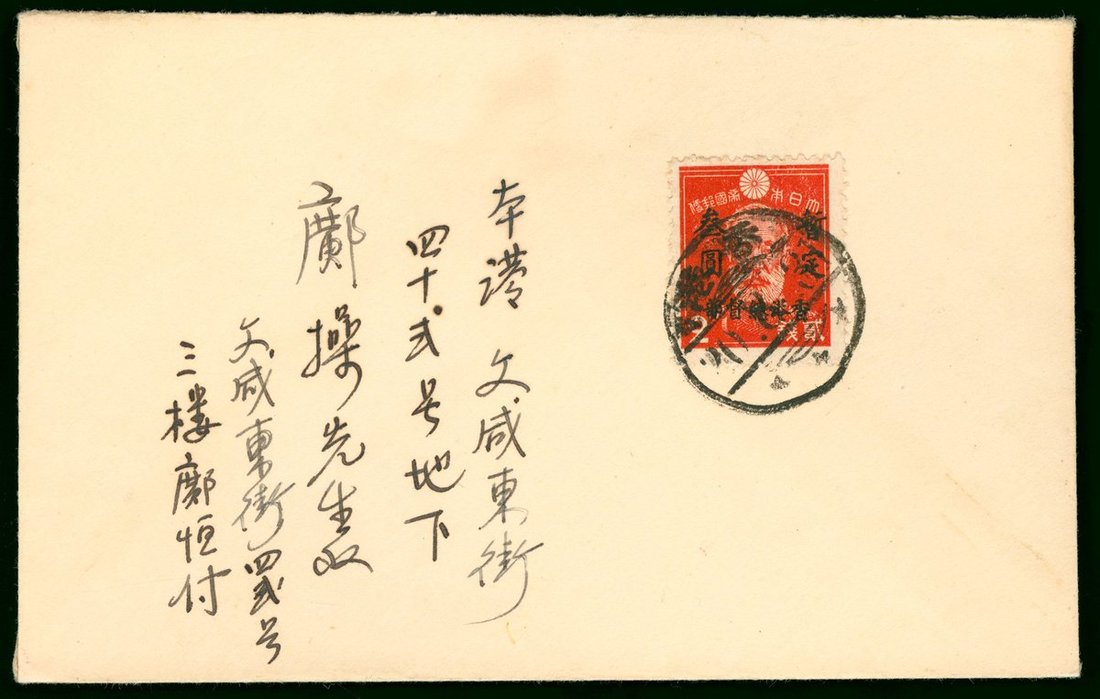 大日本帝國郵便
暫定
叁圓
香港總督部
貳錢
2
本港文咸東街
四十弍号地下
鄺操先生收
文咸東街四弍号
三楼鄺恒付